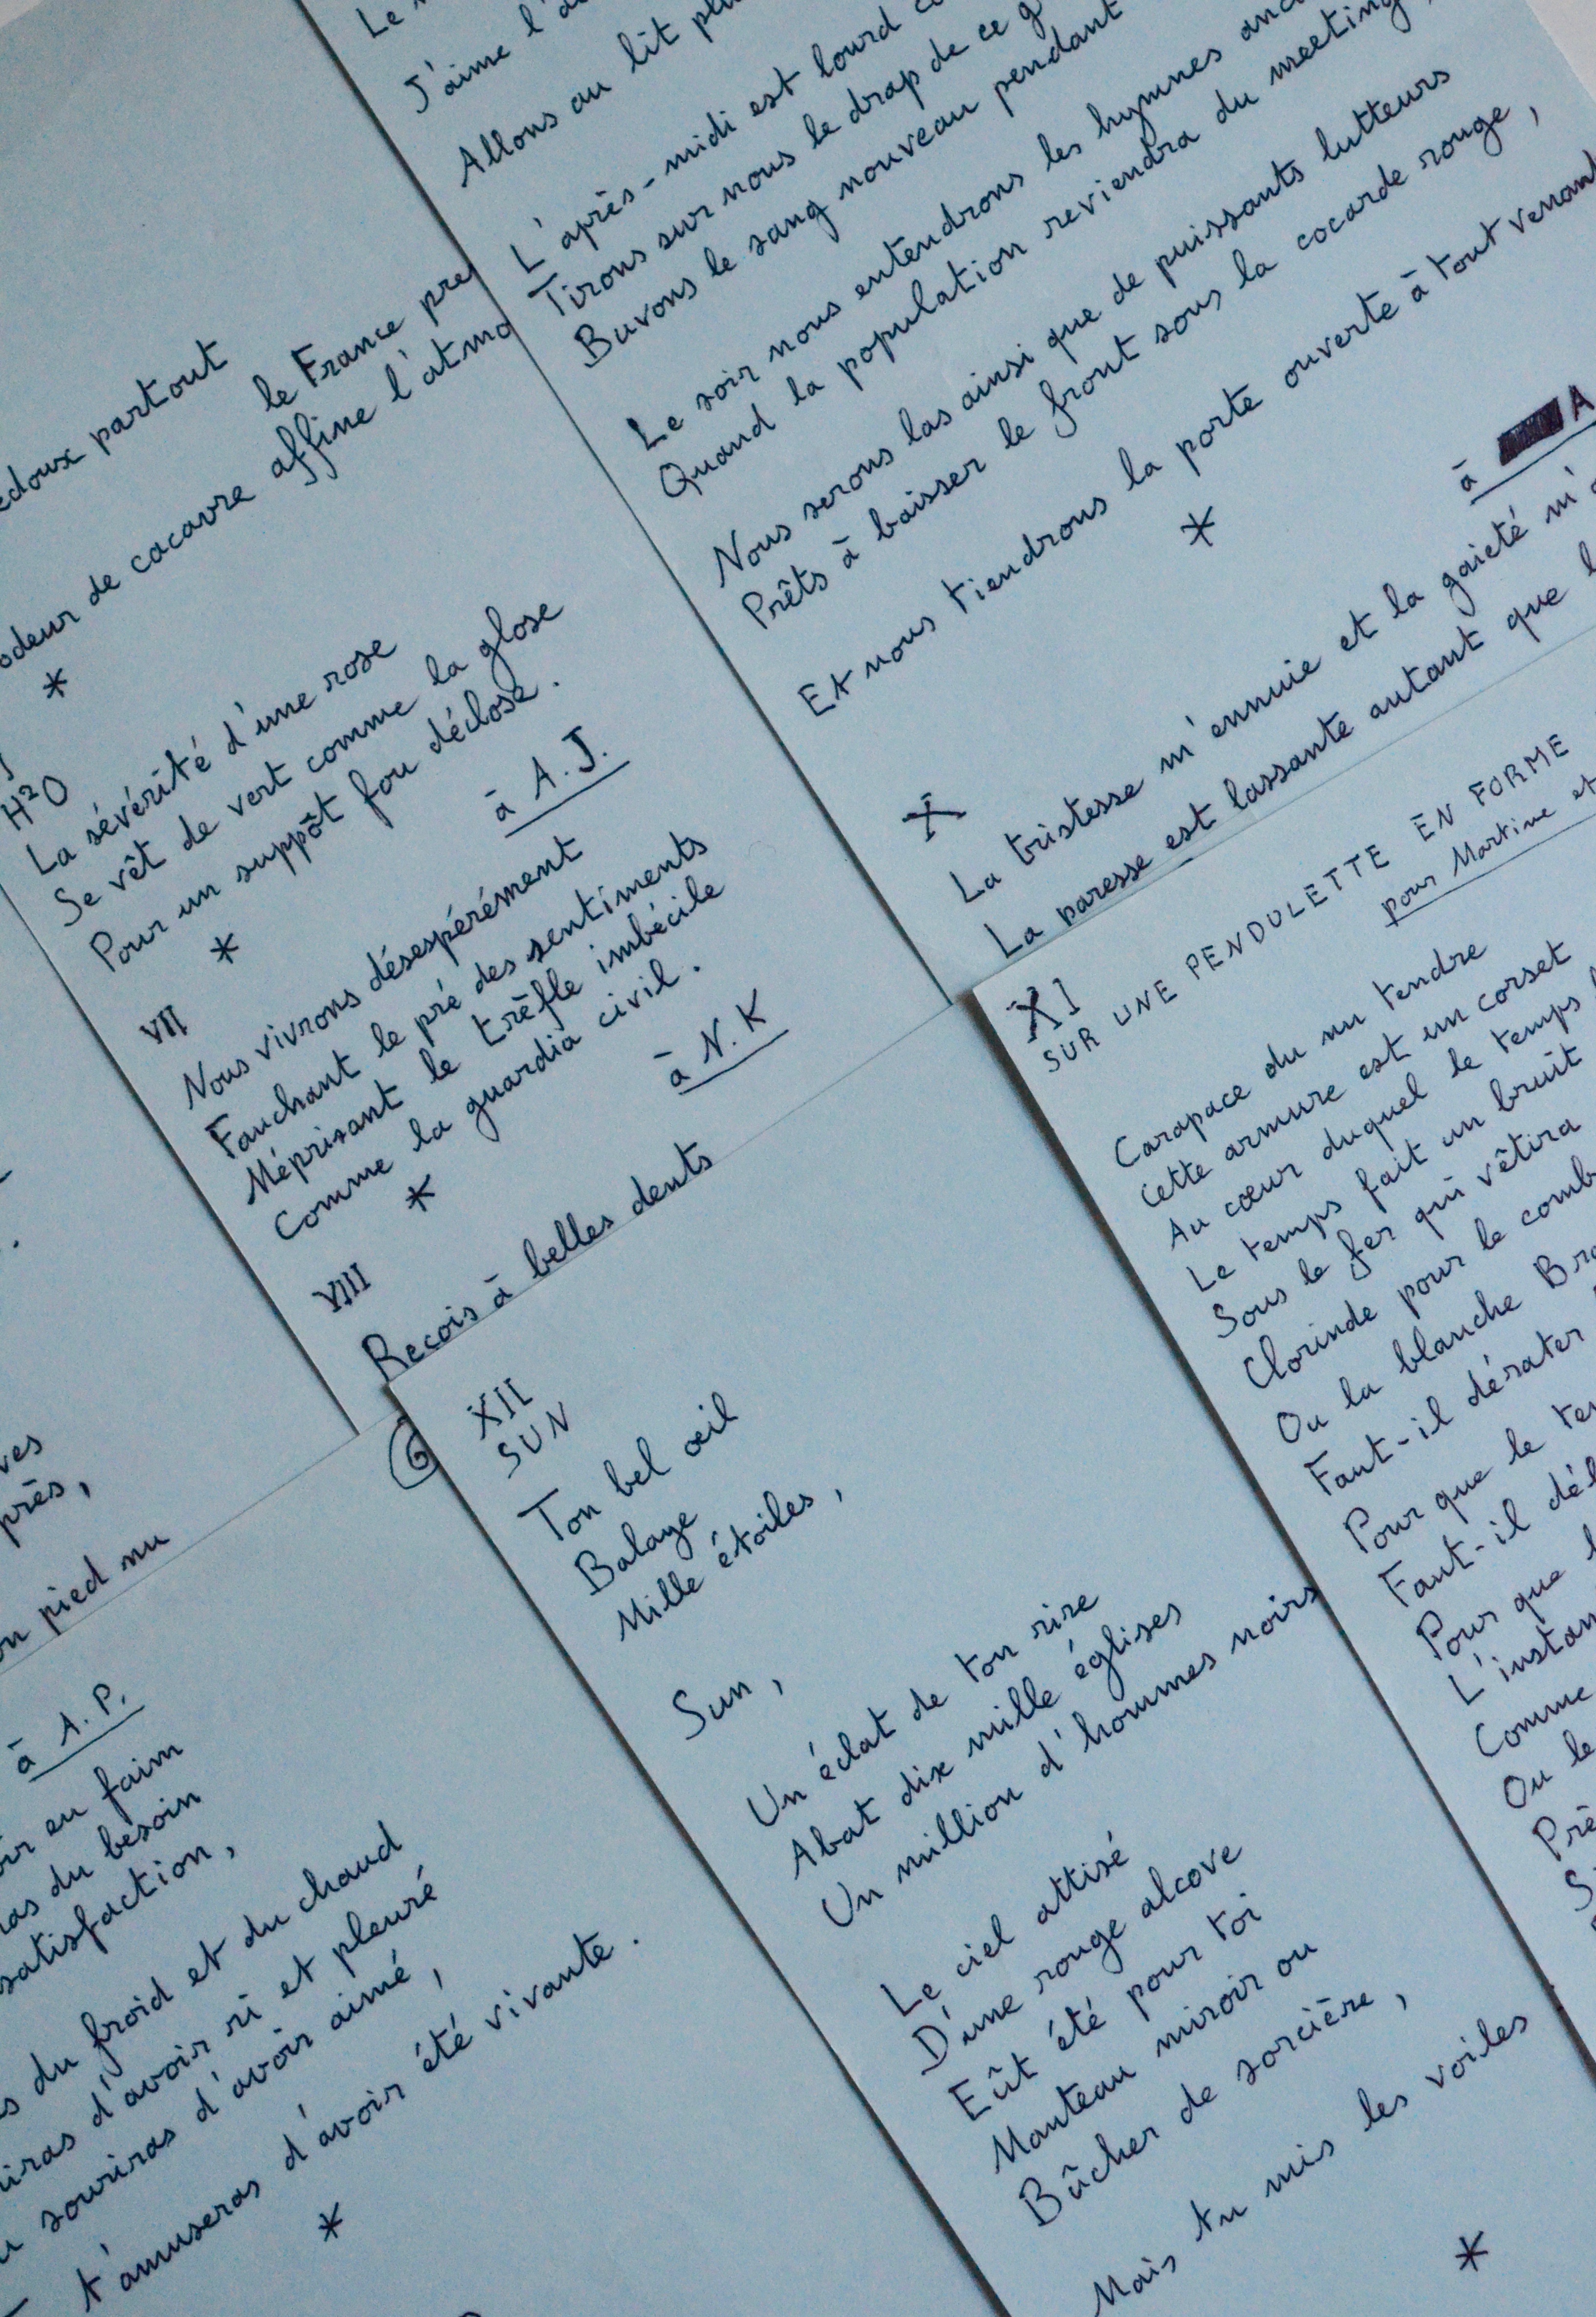 J'aime l'
Allons au lit
L'après-midi est lourd
Tirons sur nous le drap de ce
Buvons le sang nouveau pendant
Le soir nous entendrons les hymnes
Quand la population reviendra du meeting,
Nous serons las ainsi que de puissants lutteurs
Prêts à baisser le front sous la cocarde rouge,
Et nous tiendrons la porte ouverte à tout venant
*
à A
X
La tristesse m'ennuie et la gaieté m'
La paresse est lassante autant que
partout
le France
odeur de cacavre affine l'atmo
*
H²O
La sévérité d'une rose
Se vêt de vert comme la glose
Pour un suppôt fou déclose.
*
à A. J.
VII
Nous vivrons désespérément
Fauchant le pré des sentiments
Méprisant le trèfle imbécile
Comme la guardia civil.
*
à N. K
VIII
Recois à belles dents
XI
SUR UNE PENDULETTE EN FORME
pour Martine et
Carapace du nu tendre
Cette armure est un corset
Au cœur duquel le temps
Le temps fait un bruit
Sous le fer qui vêtira
Clorinde pour le
Ou la blanche
Faut-il dérater
Pour que le
Faut-il
Pour que
Comme
Ou le
près,
pied nu
à A. P.
en faim
du besoin
satisfaction,
du froid et du chaud
d'avoir ri et pleuré
souriras d'avoir aimé,
t'amuseras d'avoir été vivante.
*
6
XII
SUN
Ton bel œil
Balaye
Mille étoiles,
Sun,
Un éclat de ton rire
Abat dix mille églises
Un million d'hommes noirs
Le ciel attisé
D'une rouge alcove
Eût été pour toi
Manteau miroir ou
Bûcher de sorcière,
Mais tu mis les voiles
*